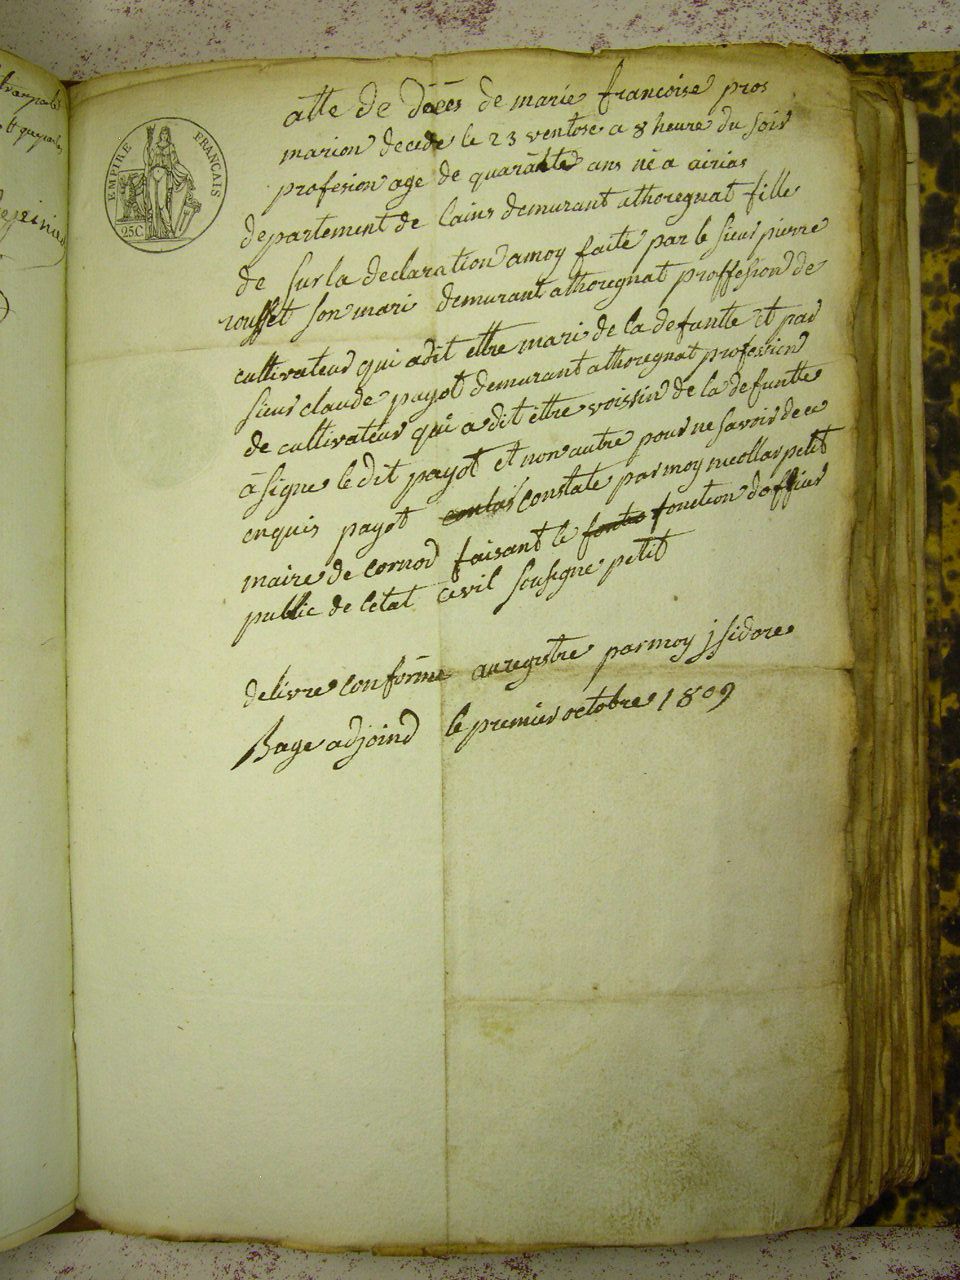 EMPIRE FRANÇAIS
25C
atte de décés de marie francoise pros
marion decede le 23 ventose a 8 heure du soir
profesion age de quarante ans né a airias
departement de lains demurant athoregnat fille
de sur la declaration amoy faite par le sieur pierre
rousset son mari demurant athoregnat proffesion de
cultivateur qui adit ettre mari de la defuntte et par
sieur claude payot demurant athoregnat profession
de cultivateur qui a dit ettre voissin de la defuntte
à signe le dit payot et non autre pour ne savoir de ce
enquis payot constate par moy nicollas petit
maire de cornod faisant le fonction dofficier
public de letat civil sousigne petit
delivre conforme au registre par moy jsidore
Bage adjoind le premier octobre 1809